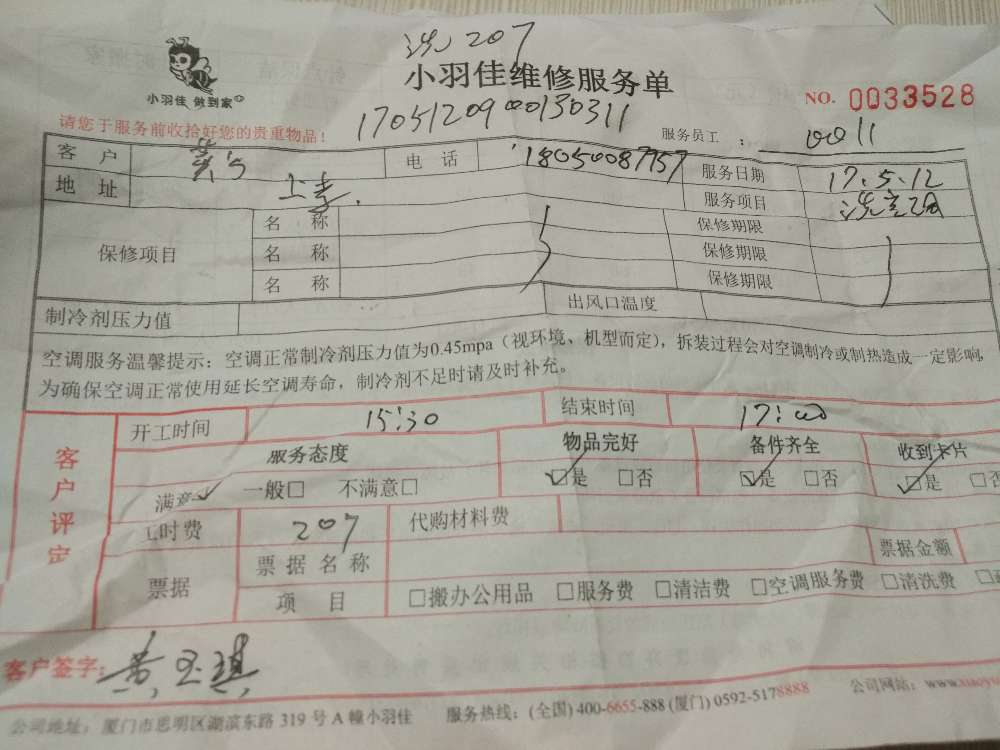 洗207
小羽佳维修服务单
小羽佳 做到家
NO. 0033528
请您于服务前收拾好您的贵重物品！
17051209000130311
服务员工 ： 0011
客 户 电 话 18050087757 服务日期 17.5.12
地 址 上李. 服务项目 洗空调
保修项目
名 称 保修期限
名 称 保修期限
名 称 保修期限
制冷剂压力值 出风口温度
空调服务温馨提示：空调正常制冷剂压力值为0.45mpa（视环境、机型而定），拆装过程会对空调制冷或制热造成一定影响，
为确保空调正常使用延长空调寿命，制冷剂不足时请及时补充。
客户评定
开工时间 15:30 结束时间 17:00
服务态度 物品完好 备件齐全 收到卡片
满意✓ 一般□ 不满意□ ☑是 □否 ☑是 □否 ☑是 □否
工时费 207 代购材料费
票据
票 据 名 称 票据金额
项 目 □搬办公用品 □服务费 □清洁费 □空调服务费 □清洗费 □
客户签字： 黄玉琪
公司地址：厦门市思明区湖滨东路 319 号 A 幢小羽佳 服务热线：(全国) 400-6655-888 (厦门) 0592-5178888 公司网站：www.xiaoyu